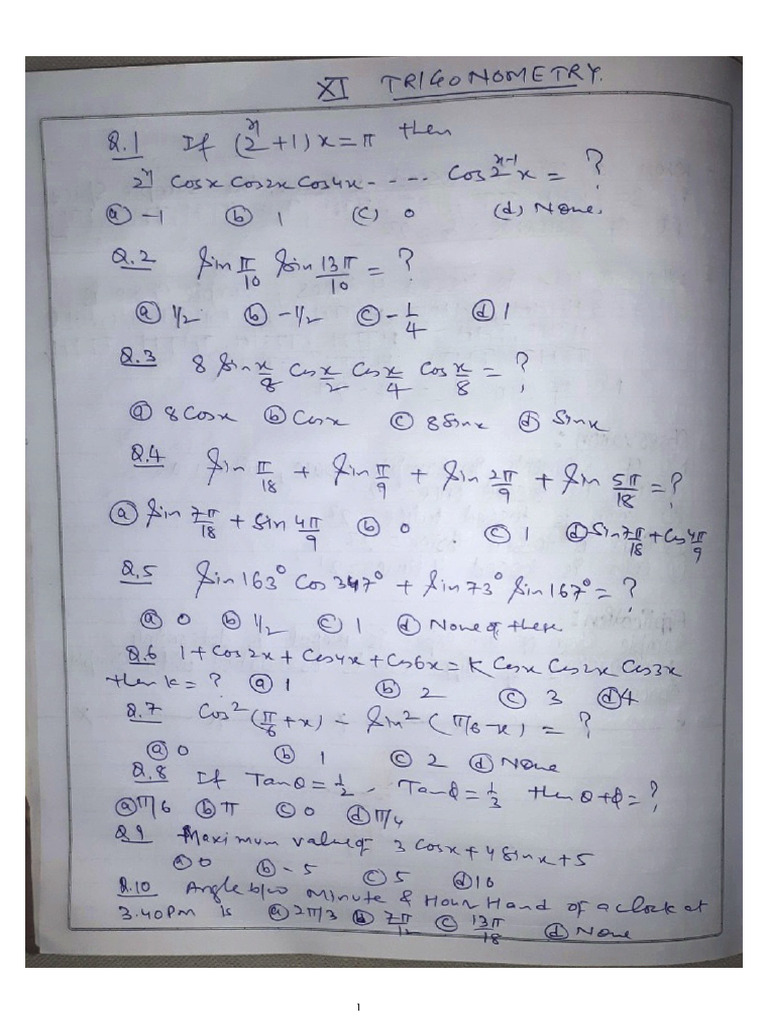 XI TRIGONOMETRY.
Q.1 If (2ⁿ+1)x=π then
2ⁿ Cosx Cos2x Cos4x----- Cos2ⁿ⁻¹x = ?
(a) -1 (b) 1 (c) 0 (d) None.
Q.2 Sin π/10 Sin 13π/10 = ?
(a) 1/2 (b) -1/2 (c) -1/4 (d) 1
Q.3 8 Sin x/8 Cos x/2 Cos x/4 Cos x/8 = ?
(a) 8Cosx (b) Cosx (c) 8Sinx (d) Sinx
Q.4 Sin π/18 + Sin π/9 + Sin 2π/9 + Sin 5π/18 = ?
(a) Sin 7π/18 + Sin 4π/9 (b) 0 (c) 1 (d) Sin 7π/18 + Cos 4π/9
Q.5 Sin163° Cos347° + Sin73° Sin167° = ?
(a) 0 (b) 1/2 (c) 1 (d) None of these
Q.6 1+Cos2x+Cos4x+Cos6x=K Cosx Cos2x Cos3x
then k = ? (a) 1 (b) 2 (c) 3 (d) 4
Q.7 Cos²(π/6+x) - Sin²(π/6-x) = ?
(a) 0 (b) 1 (c) 2 (d) None
Q.8 If Tanθ=1/2, Tanϕ=1/3 then θ+ϕ=?
(a) π/6 (b) π (c) 0 (d) π/4
Q9 Maximum value of 3Cosx+4Sinx+5
(a) 0 (b) -5 (c) 5 (d) 10
Q.10 Angle b/w Minute & Hour Hand of a clock at
3.40PM is (a) 2π/3 (b) 7π/12 (c) 13π/18 (d) None
1